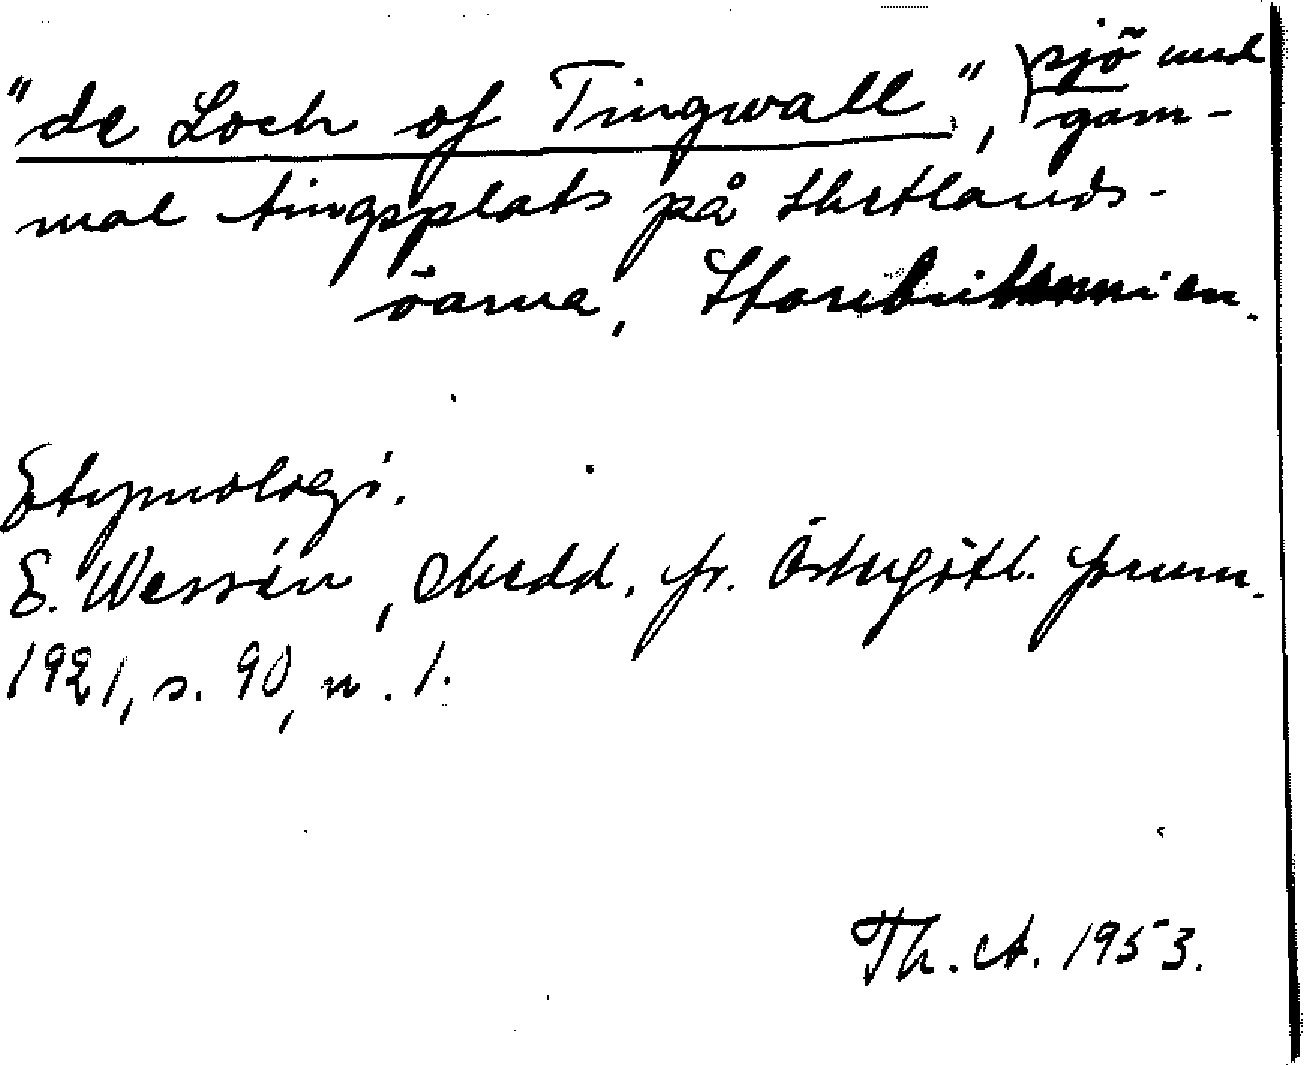 "de Loch of Tingwall", sjö med
gam-
mal tingsplats på Shetlands-
öarna, Storbritannien.
Etymologi.
E. Wessén, Medd. fr. Östergötl. fornm.
1921, s. 90, n. 1.
Th. A. 1953.